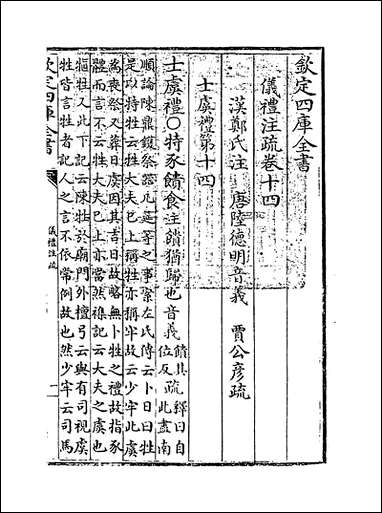 欽定四庫全書
儀禮注疏卷十四
漢鄭氏注 唐陸德明音義 賈公彦疏
士虞禮第十四
士虞禮○特豕饋食注饋猶歸也音義饋其位反疏釋曰自此盡南
順論陳鼎鑊祭器几筵等之事案左氏傳云卜日曰牲
是以特牲云牲大夫已上稱牲亦稱牢故云少牢此虞
為喪祭又葬日虞因其吉日故略無卜牲之禮故指豕
體而言不云牲大夫已上亦當然雜記云大夫之虞也
犆牲又此下記云陳牲於廟門外檀弓云與有司視虞
牲皆言牲者記人之言不依常例故也然少牢云司馬
欽定四庫全書
儀禮注疏
一